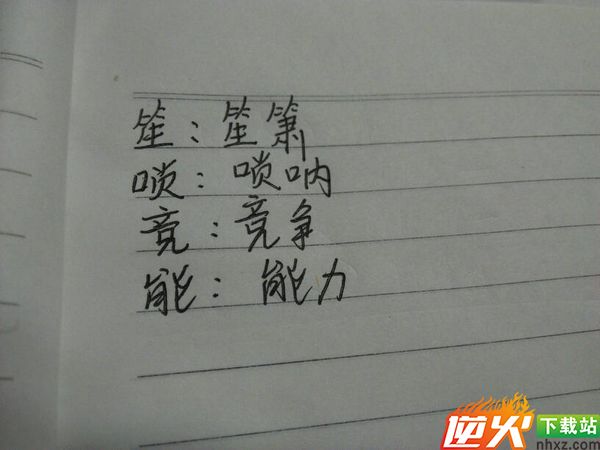 笙：笙箫
唢：唢呐
竞：竞争
能：能力
逆火 下载站
nhxz.com